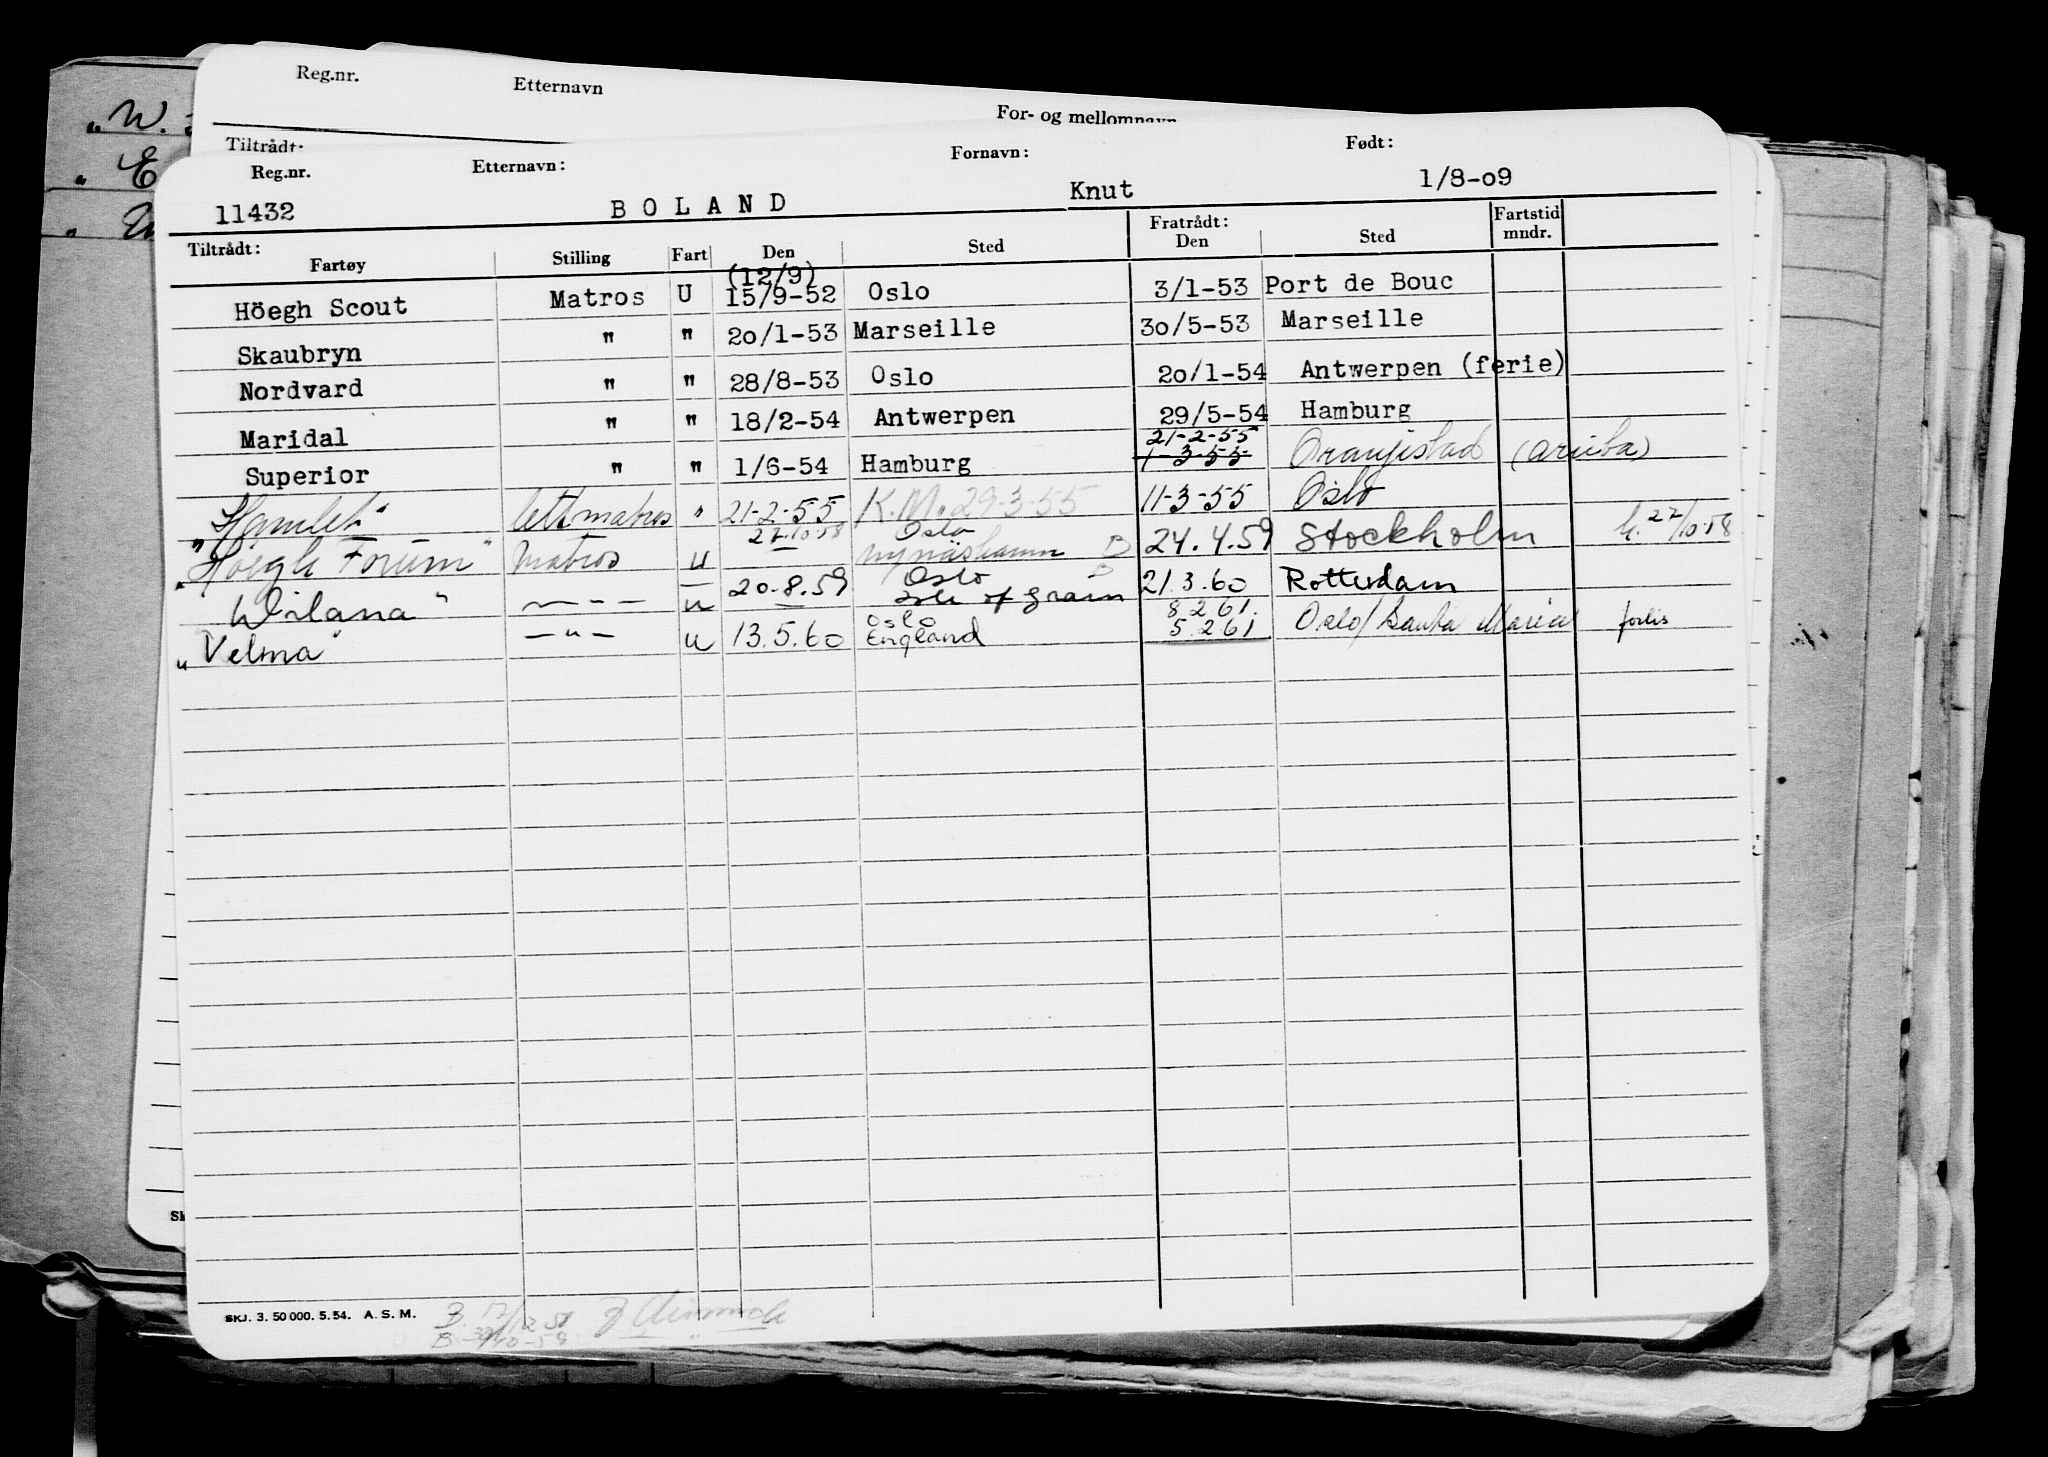 „W.
„ E
„
Reg.nr. Etternavn For- og mellomnavn
Tiltrådt:
Reg.nr. Etternavn: Fornavn: Født:
11432 BOLAND Knut 1/8-09
Tiltrådt: Fratrådt: Fartstid mndr.
Fartøy Stilling Fart Den Sted Den Sted
(12/9)
Höegh Scout Matros U 15/9-52 Oslo 3/1-53 Port de Bouc
Skaubryn " " 20/1-53 Marseille 30/5-53 Marseille
Nordvard " " 28/8-53 Oslo 20/1-54 Antwerpen (ferie)
Maridal " " 18/2-54 Antwerpen 29/5-54 Hamburg
21-2-55
Superior " " 1/6-54 Hamburg 1-3-55 Oranjestad (Aruba)
„Hamlet" lettmatros " 21-2-55 K.M. 29-3-55 11-3-55 Oslo
27.10.58 Oslo
„Höegh Forum" Matros u nynäshamn B 24.4.59 Stockholm h. 27/10-58
Oslo B
„Wilana" — - - u 20.8.59 Isle of Grain 21.3.60 Rotterdam
Oslo 8.2.61.
„Velma" — " — u 13.5.60 England 5.2.61 Oslo/Santa Maria forlis
SKJ. 3. 50 000. 5. 54. A. S. M. B. 17/12 58
B.